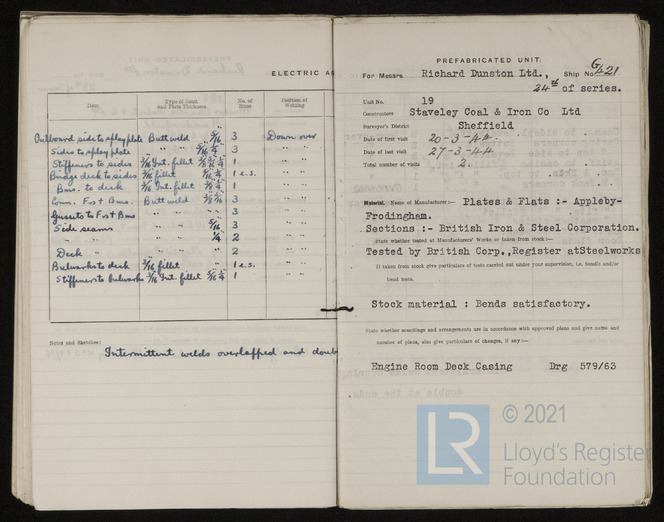 ELECTRIC AR
Item
Type of Joint and Plate Thickness
No. of Runs
Position of Welding
Outboard side to splay plate Butt weld 5/16 3 Down over
Sides to splay plate " " 5/16 1/4 3 " "
Stiffeners to sides 3/16 Int. fillet 1 " "
Bridge deck to sides 3/16 fillet 1 e.s. " "
Bms. to deck 3/16 Int. fillet 1 " "
Conn. Frs + Bms. Butt weld 3 " "
Gussets to Frs + Bms " " 3 " "
Side seams " " 5/16 3 " "
" " " " 1/4 2 " "
Deck " " " 2 " "
Bulwarks to deck 3/16 fillet 1 e.s. " "
Stiffeners to bulwarks 3/16 Int. fillet 5/16 1/4 1 " "
Notes and Sketches:
Intermittent welds overlapped and doub
PREFABRICATED UNIT.
For Messrs. Richard Dunston Ltd., Ship No. G421
24th of series.
Unit No. 19
Constructors Staveley Coal & Iron Co Ltd
Surveyor's District Sheffield
Date of first visit 20-3-44
Date of last visit 27-3-44.
Total number of visits 2.
Material. Name of Manufacturer:— Plates & Flats :- Appleby-
Frodingham.
Sections :- British Iron & Steel Corporation.
State whether tested at Manufacturers' Works or taken from stock:—
Tested by British Corp., Register at Steelworks
If taken from stock give particulars of tests carried out under your supervision, i.e. tensile and/or
bend tests.
Stock material : Bends satisfactory.
State whether scantlings and arrangements are in accordance with approved plans and give name and
number of plans, also give particulars of changes, if any :—
Engine Room Deck Casing Drg 579/63
© 2021
LR
Lloyd's Register
Foundation